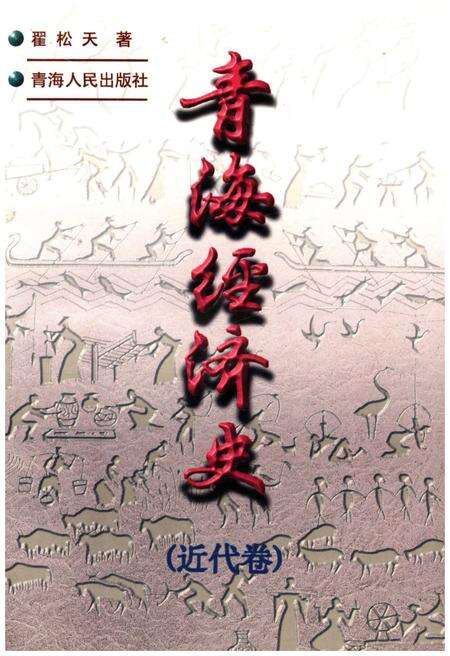 翟松天 著
青海人民出版社
青海经济史
(近代卷)